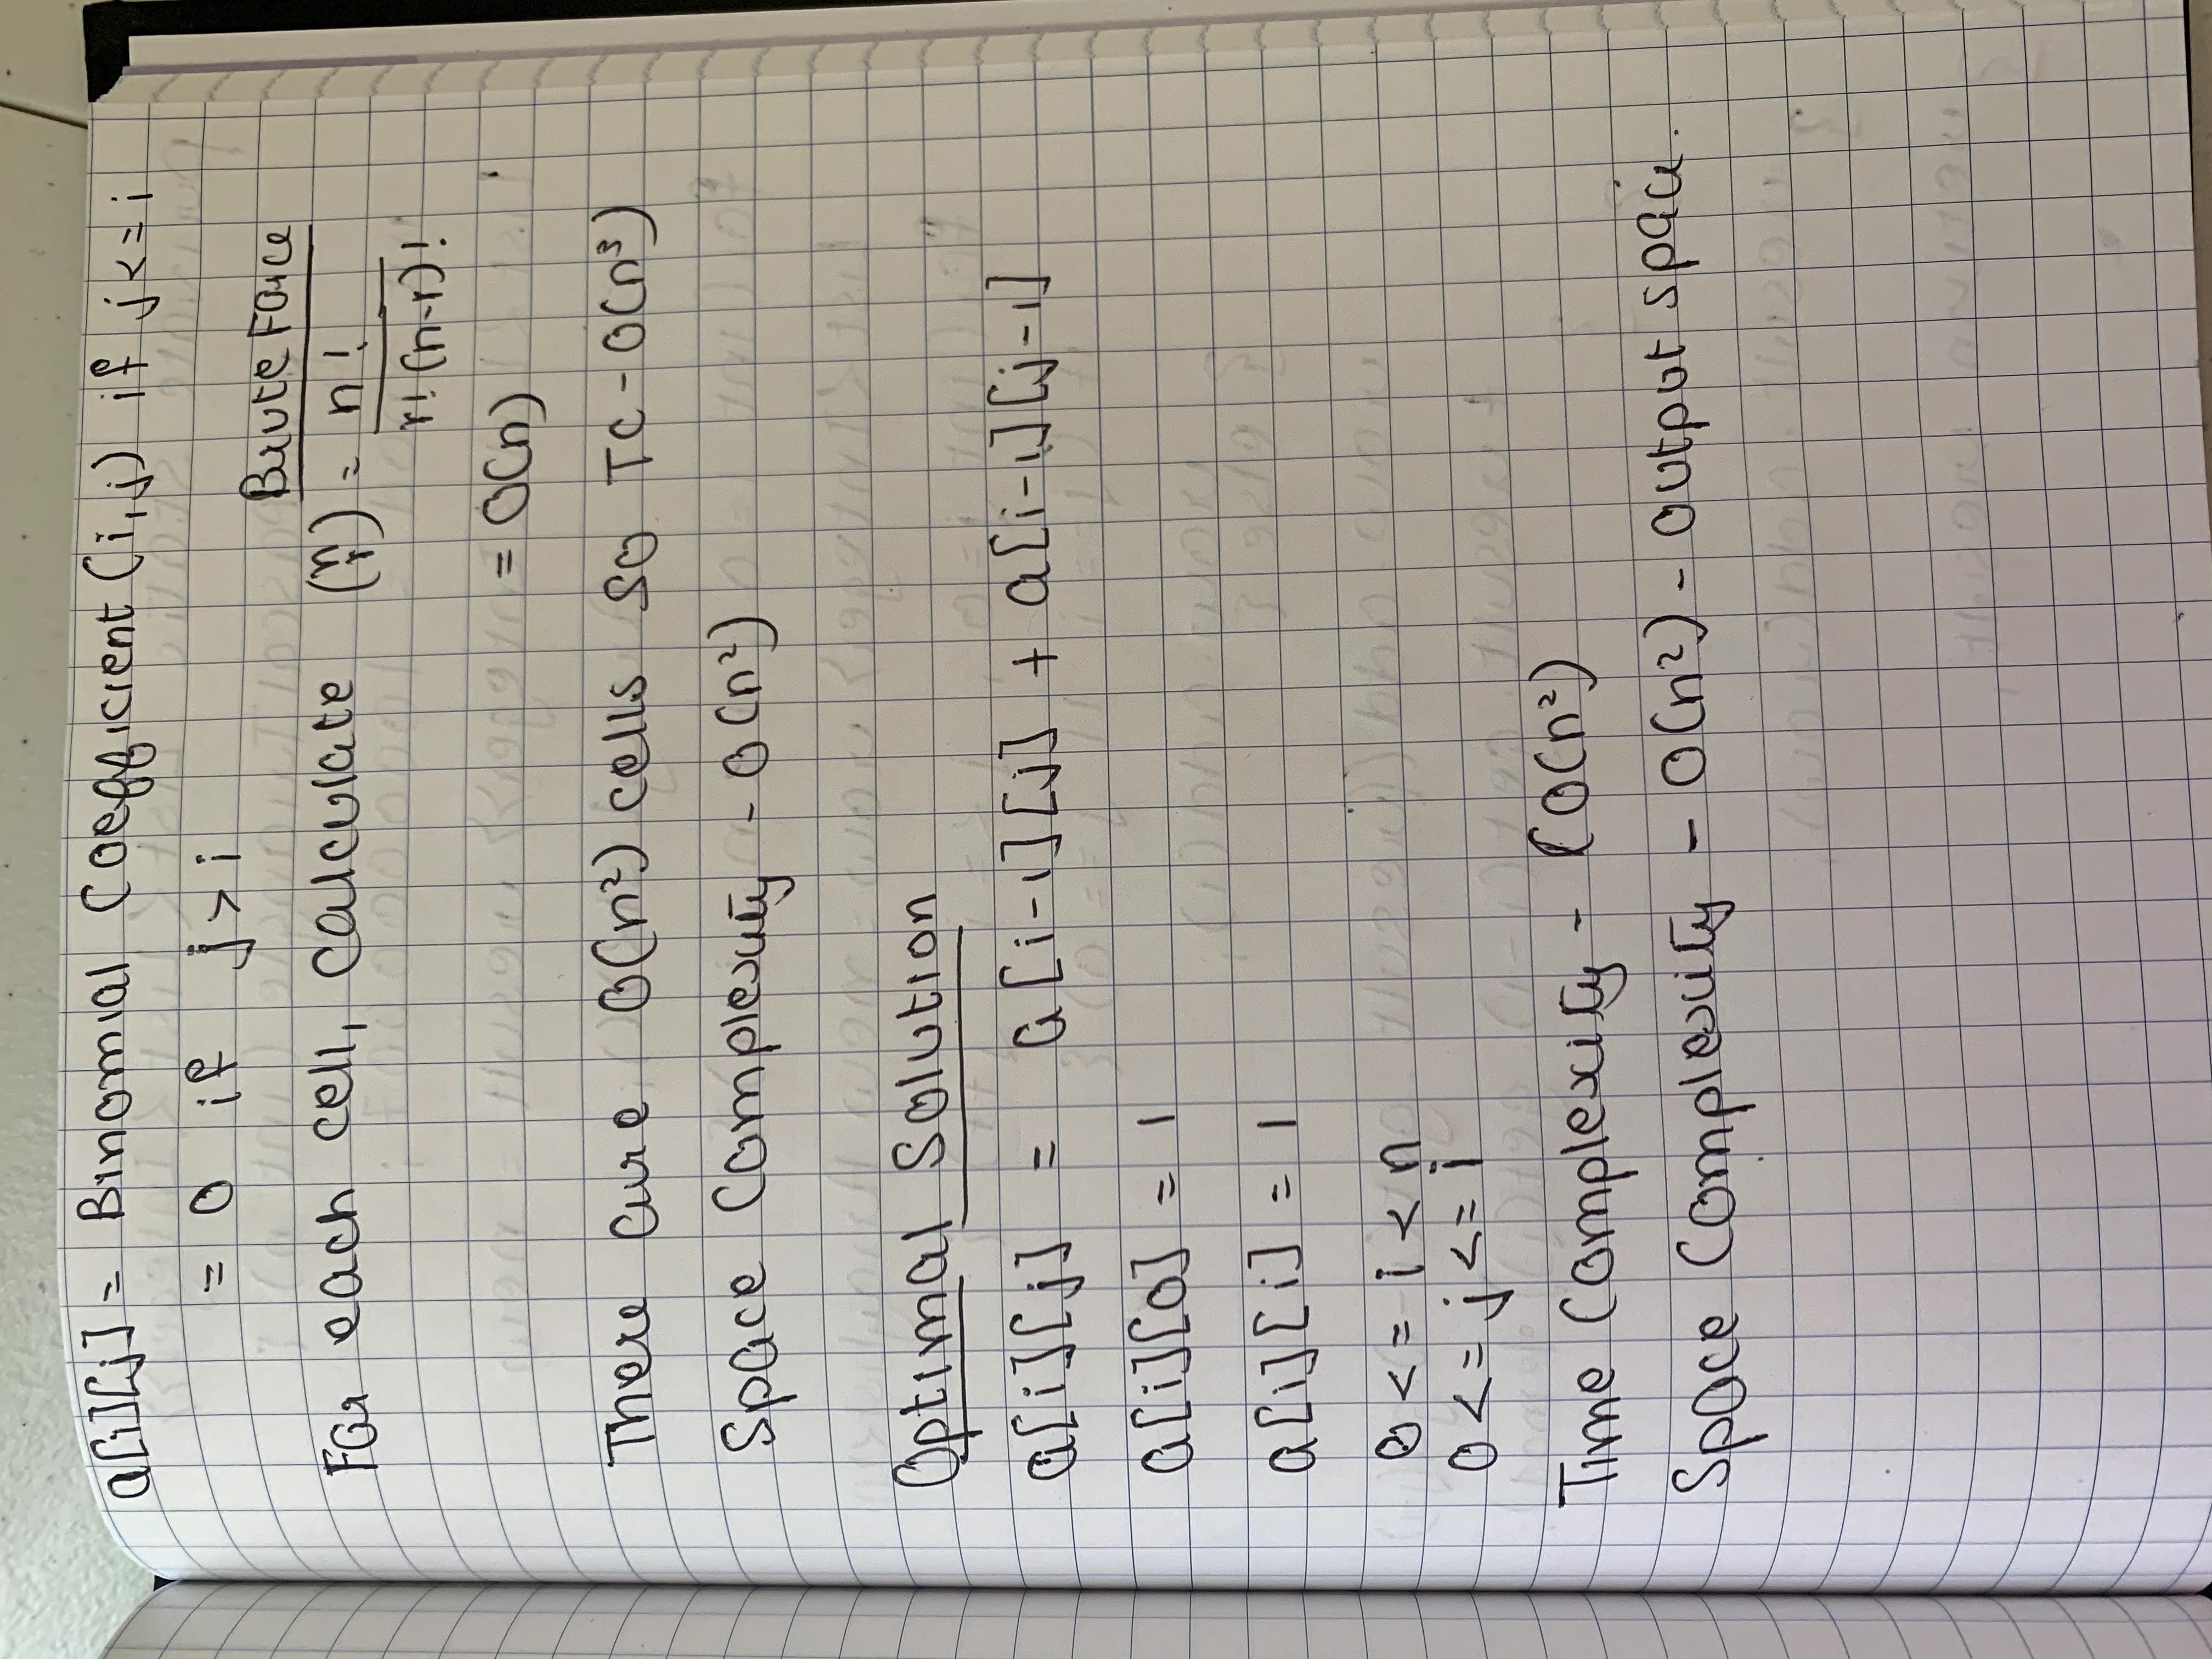 a[i][j] = Binomial Coefficient (i,j) if j<=i
= 0 if j > i
Brute Force
For each cell, calculate (n r) = n! / r! (n-r)!
= O(n)
There are O(n²) cells so TC - O(n³)
Space Complexity - O(n²)
Optimal Solution
a[i][j] = a[i-1][j] + a[i-1][j-1]
a[i][0] = 1
a[i][i] = 1
0 <= i < n
0 <= j <= i
Time Complexity - (O(n²)
Space Complexity - O(n²) - output space.